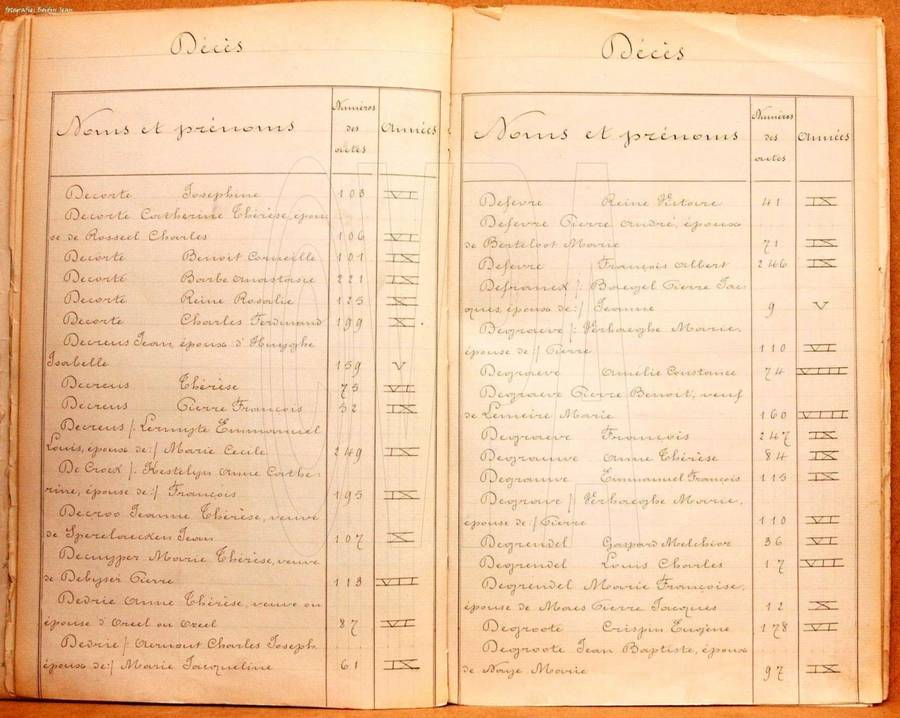 Décès
Noms et prénoms Numéros des actes Années
Decorte Josephine 103 VI
Decorte Catherine Thérèse, épou
se de Rosseel Charles 106 VI
Decorte Benoit Corneille 101 IX
Decorte Barbe Anastasie 221 IX
Decorte Reine Rosalie 125 XI
Decorte Charles Ferdinand 199 XI.
Decreus Jean, époux d'Huyghe
Isabelle 159 V
Decreus Thérèse 75 VI
Decreus Pierre François 32 IX
Decreus /: Lermyte Emmanuel
Louis, époux de :/ Marie Cecile 249 IX
De Crock /: Kestelyn Anne Cathe-
rine, épouse de :/ François 195 IX
Decroo Jeanne Thérèse, veuve
de Sperelaecken Jean 107 X
Decuyper Marie Thérèse, veuve
de Debyser Pierre 113 VII
Dedrie Anne Thérèse, veuve ou
épouse d'Oreel ou Oreel 87 VI
Dedrie /: Aernout Charles Joseph
époux de :/ Marie Jacqueline 61 IX
Décès
Noms et prénoms Numéros des actes Années
Defevre Reine Victoire 41 IX
Defevre Pierre André, époux
de Berteloot Marie 71 IX
Defevre François Albert 246 IX
Defranck /: Boegel Pierre Jac-
ques, époux de :/ Jeanne 9 V
Degraeve /: Verhaeghe Marie,
épouse de :/ Pierre 110 VI
Degraeve Amelie Constance 74 VIII
Degraeve Pierre Benoit, veuf
de Lemeire Marie 160 VIII
Degraeve François 247 IX
Degrauwe Anne Thérèse 84 IX
Degrauwe Emmanuel François 115 IX
Degrave /: Verhaeghe Marie,
épouse de :/ Pierre 110 VI
Degrendel Gaspard Melchior 36 VI
Degrendel Louis Charles 17 VII
Degrendel Marie Françoise,
épouse de Maes Pierre Jacques 12 X
Degroote Crispin Eugène 178 VI
Degroote Jean Baptiste, époux
de Naye Marie 97 IX